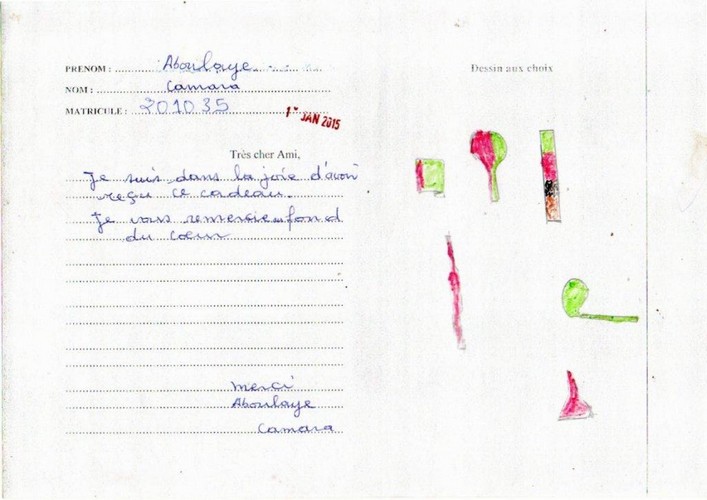 PRENOM : Aboulaye
NOM : Camara
MATRICULE : 201035
1 JAN 2015
Dessin aux choix
Très cher Ami,
Je suis dans la joie d'avoir
reçu ce cadeau.
Je vous remercie au fond
du cœur
Merci
Aboulaye
Camara